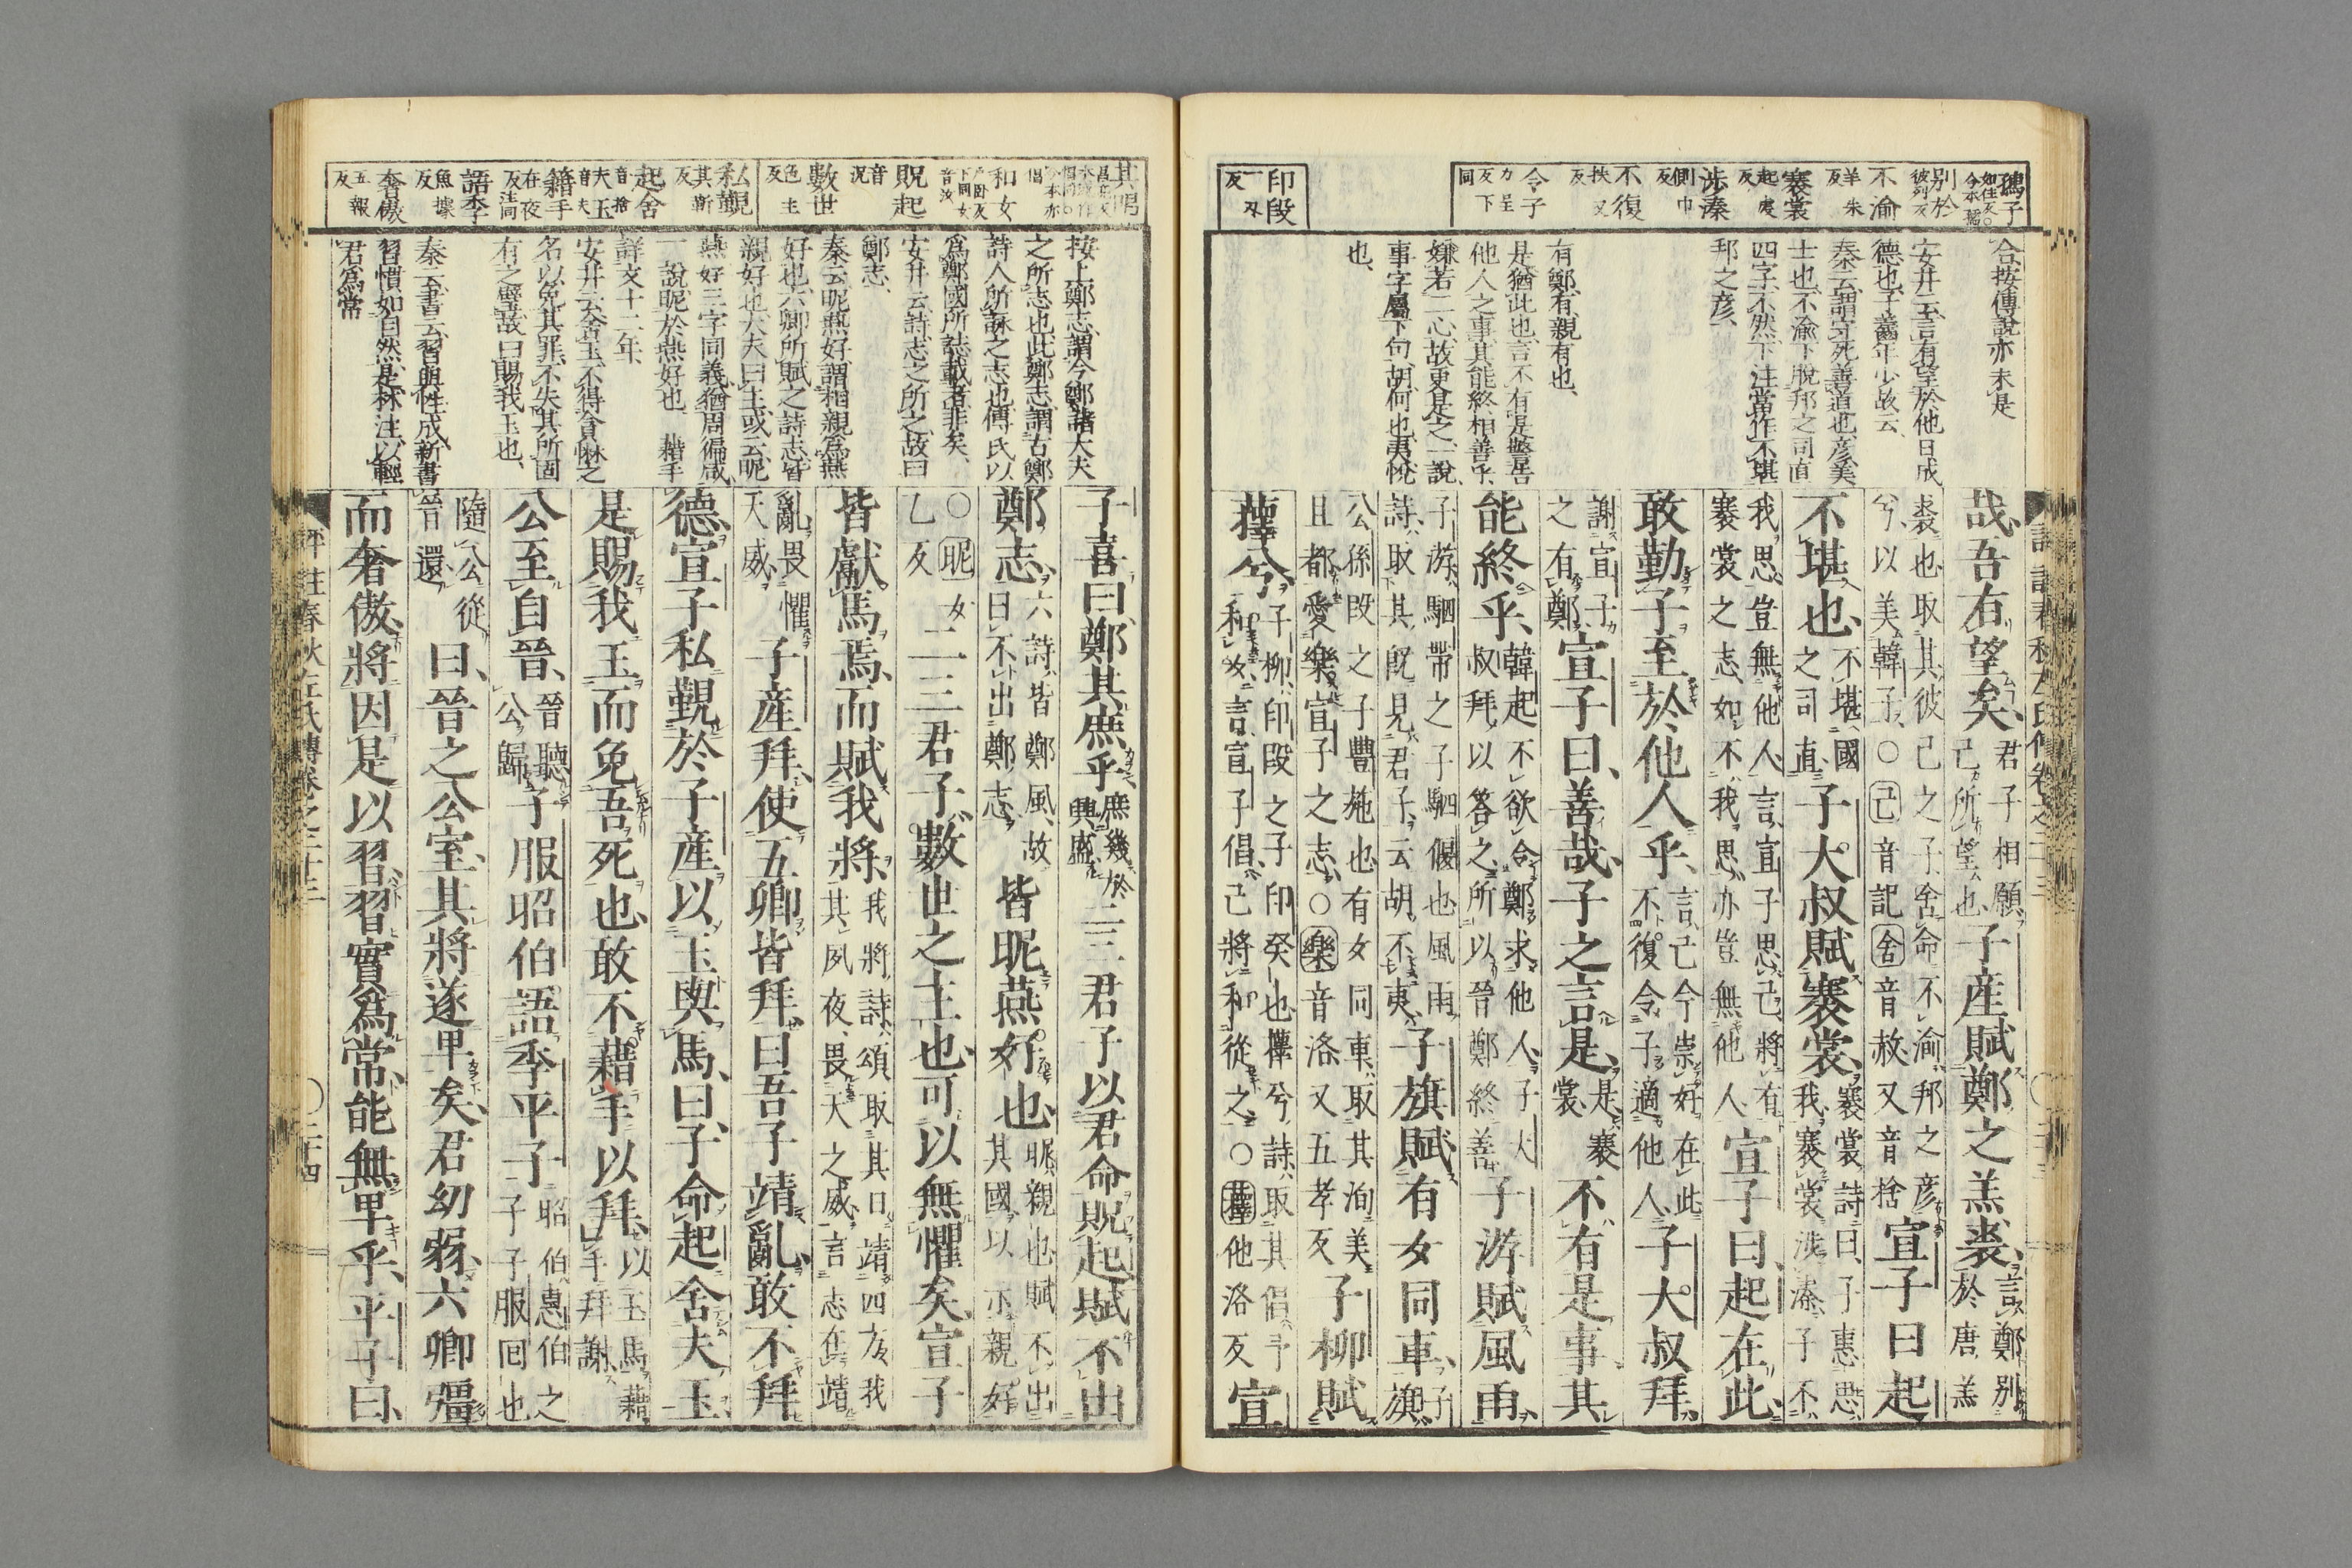 哉、吾有望矣、君子相願、己所望也、子産賦鄭之羔裘、言鄭別於唐羔
裘也、取其彼己之子、舍命不渝、邦之彦兮、以美韓子、○己音記舍音赦又音捨宣子曰、起
不堪也、不堪國之司直、子大叔賦褰裳、褰裳詩曰、子惠思我、褰裳涉溱、子不
我思、豈無他人、言宣子思己、將有褰裳之志、如不我思、亦豈無他人、宣子曰、起在此、
敢勤子至於他人乎、言己今崇好在此、不復令子適他人、子大叔拜、
謝宣子之有鄭、宣子曰、善哉、子之言是、是褰裳、不有是事、其
能終乎、韓起不欲令鄭求他人、子大叔拜、以答之、所以晉鄭終善、子游賦風雨、
子游、駟帶之子駟偃也、風雨詩、取其既見君子、云胡不夷、子旗賦有女同車、子旗、
公孫段之子豐施也、有女同車、取其洵美且都、愛樂宣子之志、○樂音洛又五孝反子柳賦
蘀兮、子柳、印段之子印癸也、蘀兮詩、取其倡予和女、言宣子倡、己將和從之、○蘀他洛反宣
子喜曰、鄭其庶乎、庶幾於興盛、二三君子以君命貺起、賦不出
鄭志、六詩、皆鄭風、故曰不出鄭志、皆昵燕好也、昵、親也、賦不出其國、以示親好、
○昵女乙反二三君子、數世之主也、可以無懼矣、宣子
皆獻馬焉、而賦我將、我將、詩頌、取其日靖四方、我其夙夜、畏天之威、言志在靖
亂、畏懼天威、子産拜、使五卿皆拜、曰、吾子靖亂、敢不拜
德、宣子私覲於子産、以玉與馬、曰、子命起舍夫玉、
是賜我玉、而免吾死也、敢不藉手以拜、以玉馬藉手拜謝、
公至自晉、晉聽公歸、子服昭伯語季平子、昭伯、惠伯之子子服回也、
隨公從晉還、曰、晉之公室、其將遂卑矣、君幼弱、六卿彊
而奢傲、將因是以習、習實爲常、能無卑乎、平子曰、
合按傳説、亦未是
安井云、言有望於他日成
德也、子齹年少故云、
秦云、謂守死善道也、彦、美
士也、不渝下脱邦之司直
四字、不然、下注當作不堪
邦之彦、
有鄭、有、親有也、
是、猶此也、言不有是警告
他人之事、其能終相善乎、
嫌若二心、故更是之、一説、
事字屬下句、胡、何也、夷、悦
也、
按上鄭志、謂今鄭諸大夫
之所志也、此鄭志、謂古鄭
詩人所詠之志也、傅氏以
爲鄭國所誌載者、非矣、
安井云、詩、志之所之、故曰
鄭志、
秦云、昵燕好、謂相親爲燕
好也、六卿所賦之詩志、皆
親好也、大夫曰主、或云、昵
燕好三字同義、猶周徧咸
一説、昵於燕好也、藉手
詳文十二年、
安井云、舍玉、不得貪婪之
名、以免其罪、不失其所固
有之璧、故曰賜我玉也、
秦云、書云、習與性成、新書
習慣如自然、是林注以輕
君爲常
別於彼列反
不渝羊朱反
褰裳起虔反
涉溱側巾反
不復扶又反
令子力呈反下同
印段一刃反
和女戶臥反下同女音汝
貺起音況
數世色主反
私覲其靳反
起舍音捨
夫玉音夫
藉手在夜反注同
語季魚據反
奢傲五報反
評註春秋左氏傳卷之二十三